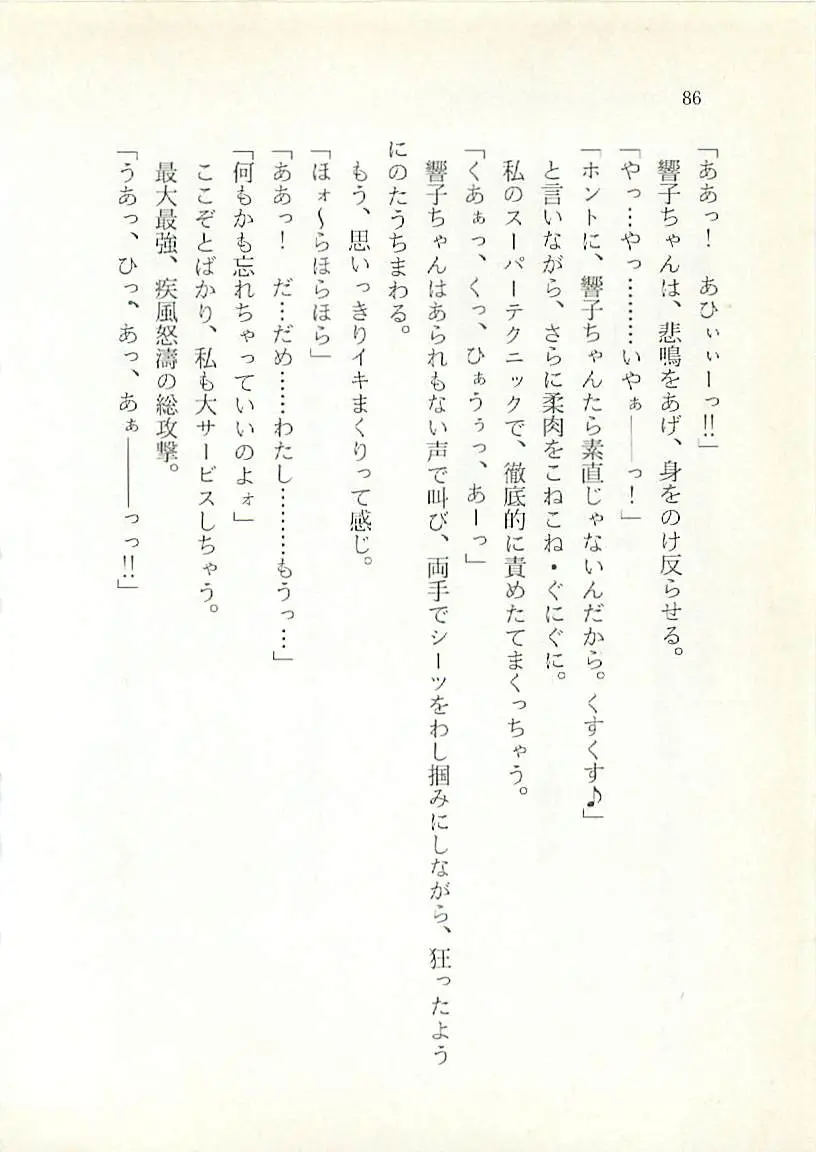 86
「ああっ!　あひぃぃーっ!!」
　響子ちゃんは、悲鳴をあげ、身をのけ反らせる。
「やっ…やっ………いやぁ――っ!」
「ホントに、響子ちゃんたら素直じゃないんだから。くすくす♪」
　と言いながら、さらに柔肉をこねこね・ぐにぐに。
　私のスーパーテクニックで、徹底的に責めたてまくっちゃう。
「くあぁっ、くっ、ひぁうぅっ、あーっ」
　響子ちゃんはあられもない声で叫び、両手でシーツをわし掴みにしながら、狂ったよう
にのたうちまわる。
　もう、思いっきりイキまくりって感じ。
「ほォ〜らほらほら」
「ああっ!　だ…だめ……わたし………もうっ…」
「何もかも忘れちゃっていいのよォ」
　ここぞとばかり、私も大サービスしちゃう。
　最大最強、疾風怒濤の総攻撃。
「うあっ、ひっ、あっ、あぁ――――っっ!!」